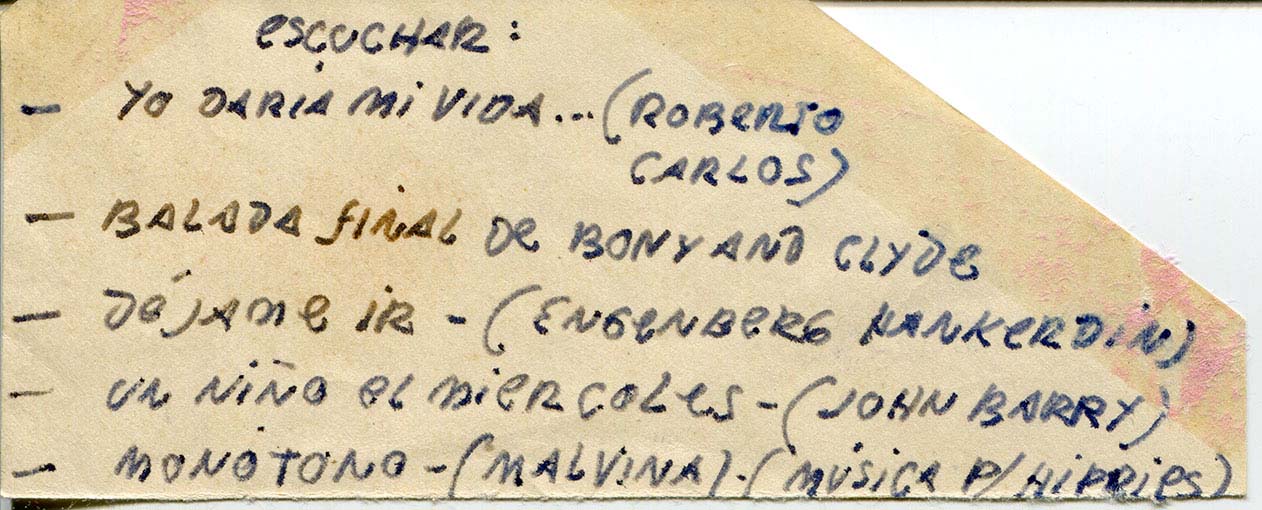 escuchar:
- Yo daria mi vida... (Roberto
Carlos)
- Balada final de Bony and Clyde
- Déjame ir - (Engenberg Hankerdin)
- un niño el miercoles - (John Barry)
- Monótono - (Malvina) - (Música p/ hippies)